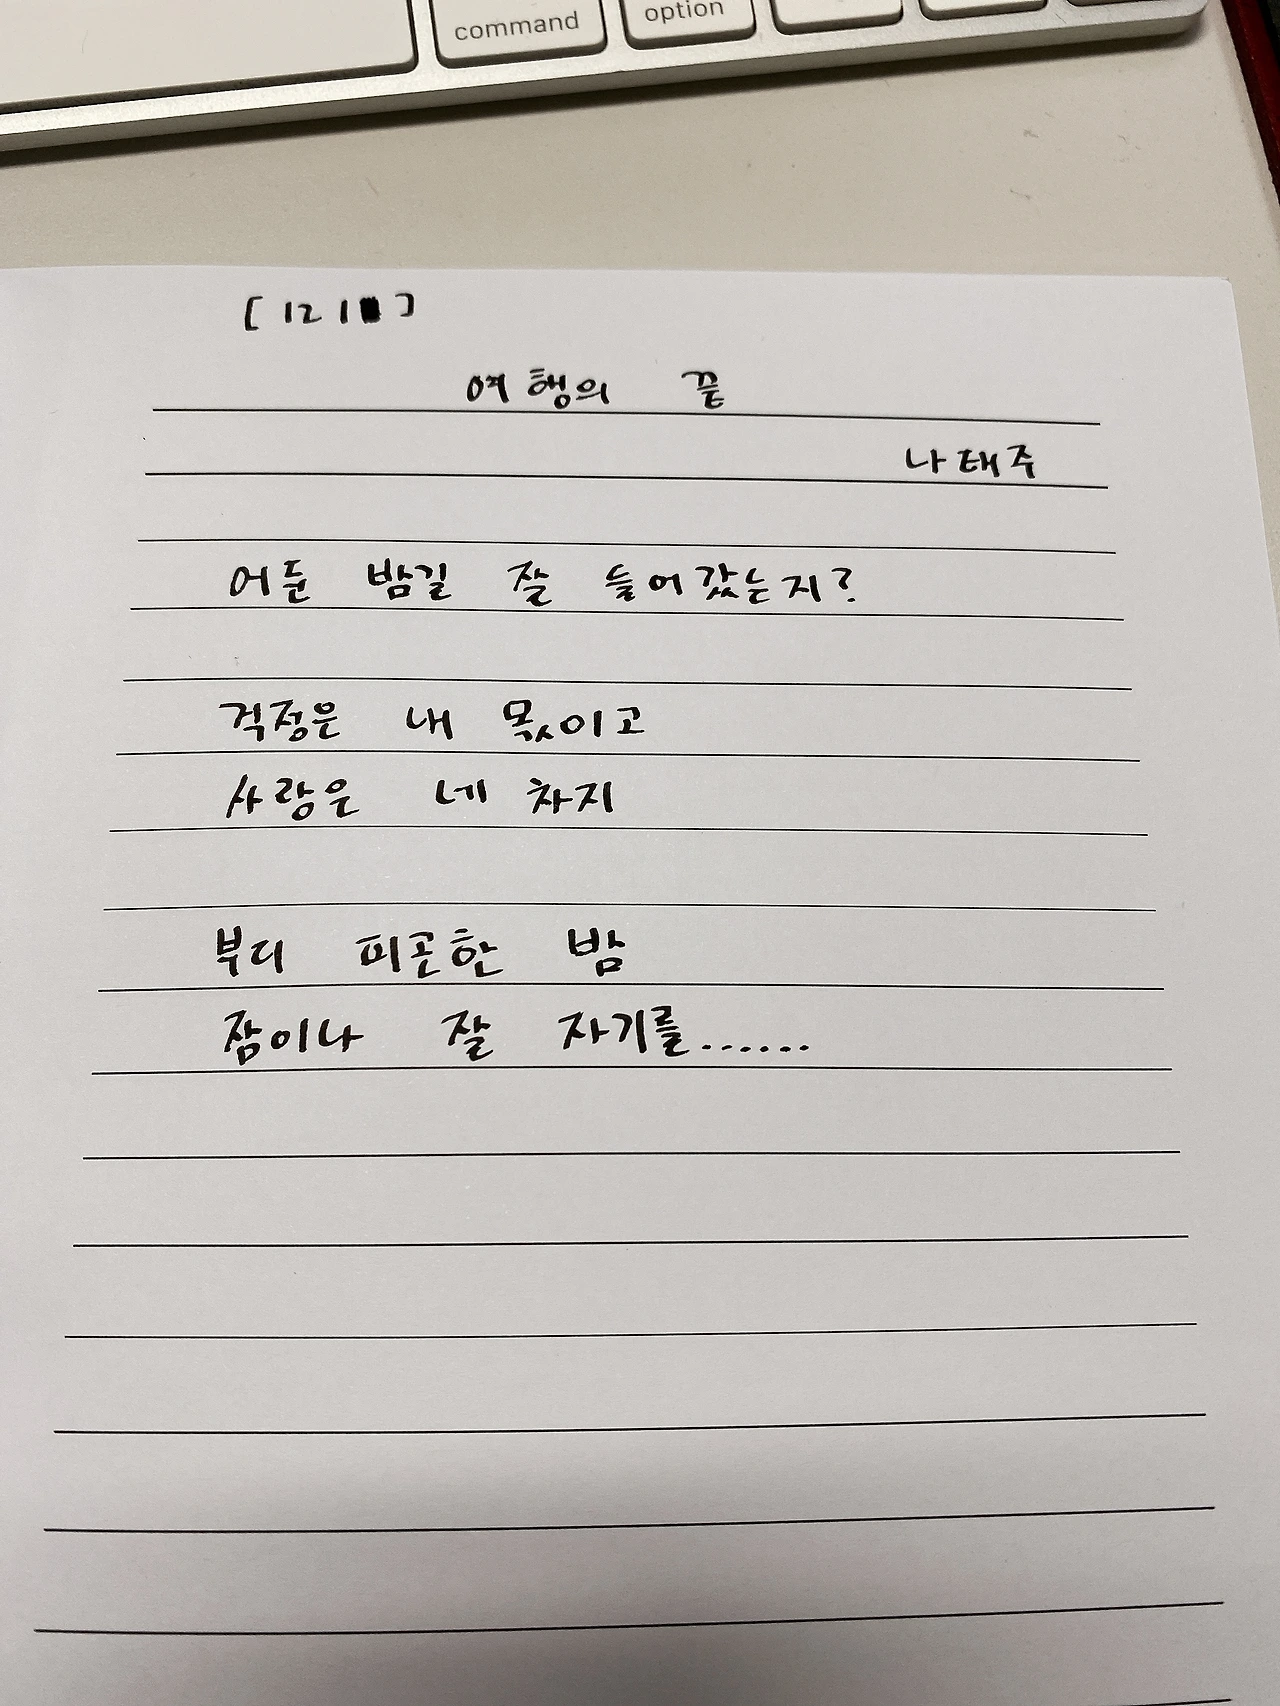 command option
[121]
여행의 끝
나태주
어둔 밤길 잘 들어갔는지?
걱정은 내 몫이고
사랑은 네 차지
부디 피곤한 밤
잠이나 잘 자기를......